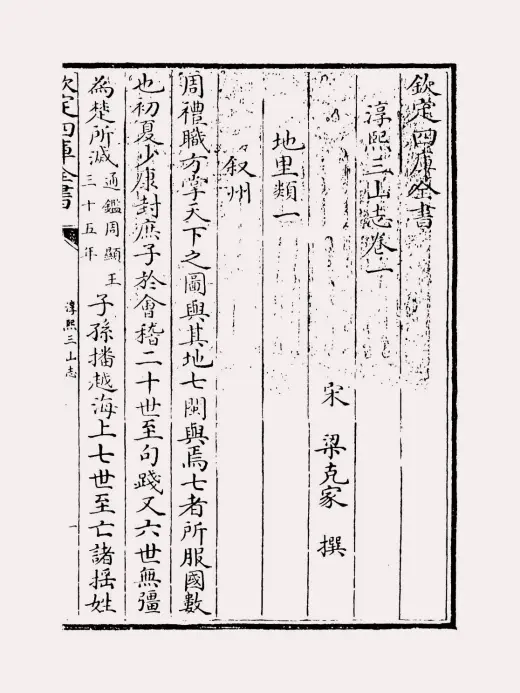 欽定四庫全書
淳熙三山志卷一
宋 梁克家 撰
地里類一
叙州
周禮職方掌天下之圖與其地七閩與焉七者所服國數
也初夏少康封庶子於會稽二十世至句踐又六世無彊
為楚所滅通鑑周顯王三十五年子孫播越海上七世至亡諸揺姓
欽定四庫全書
淳熙三山志
一